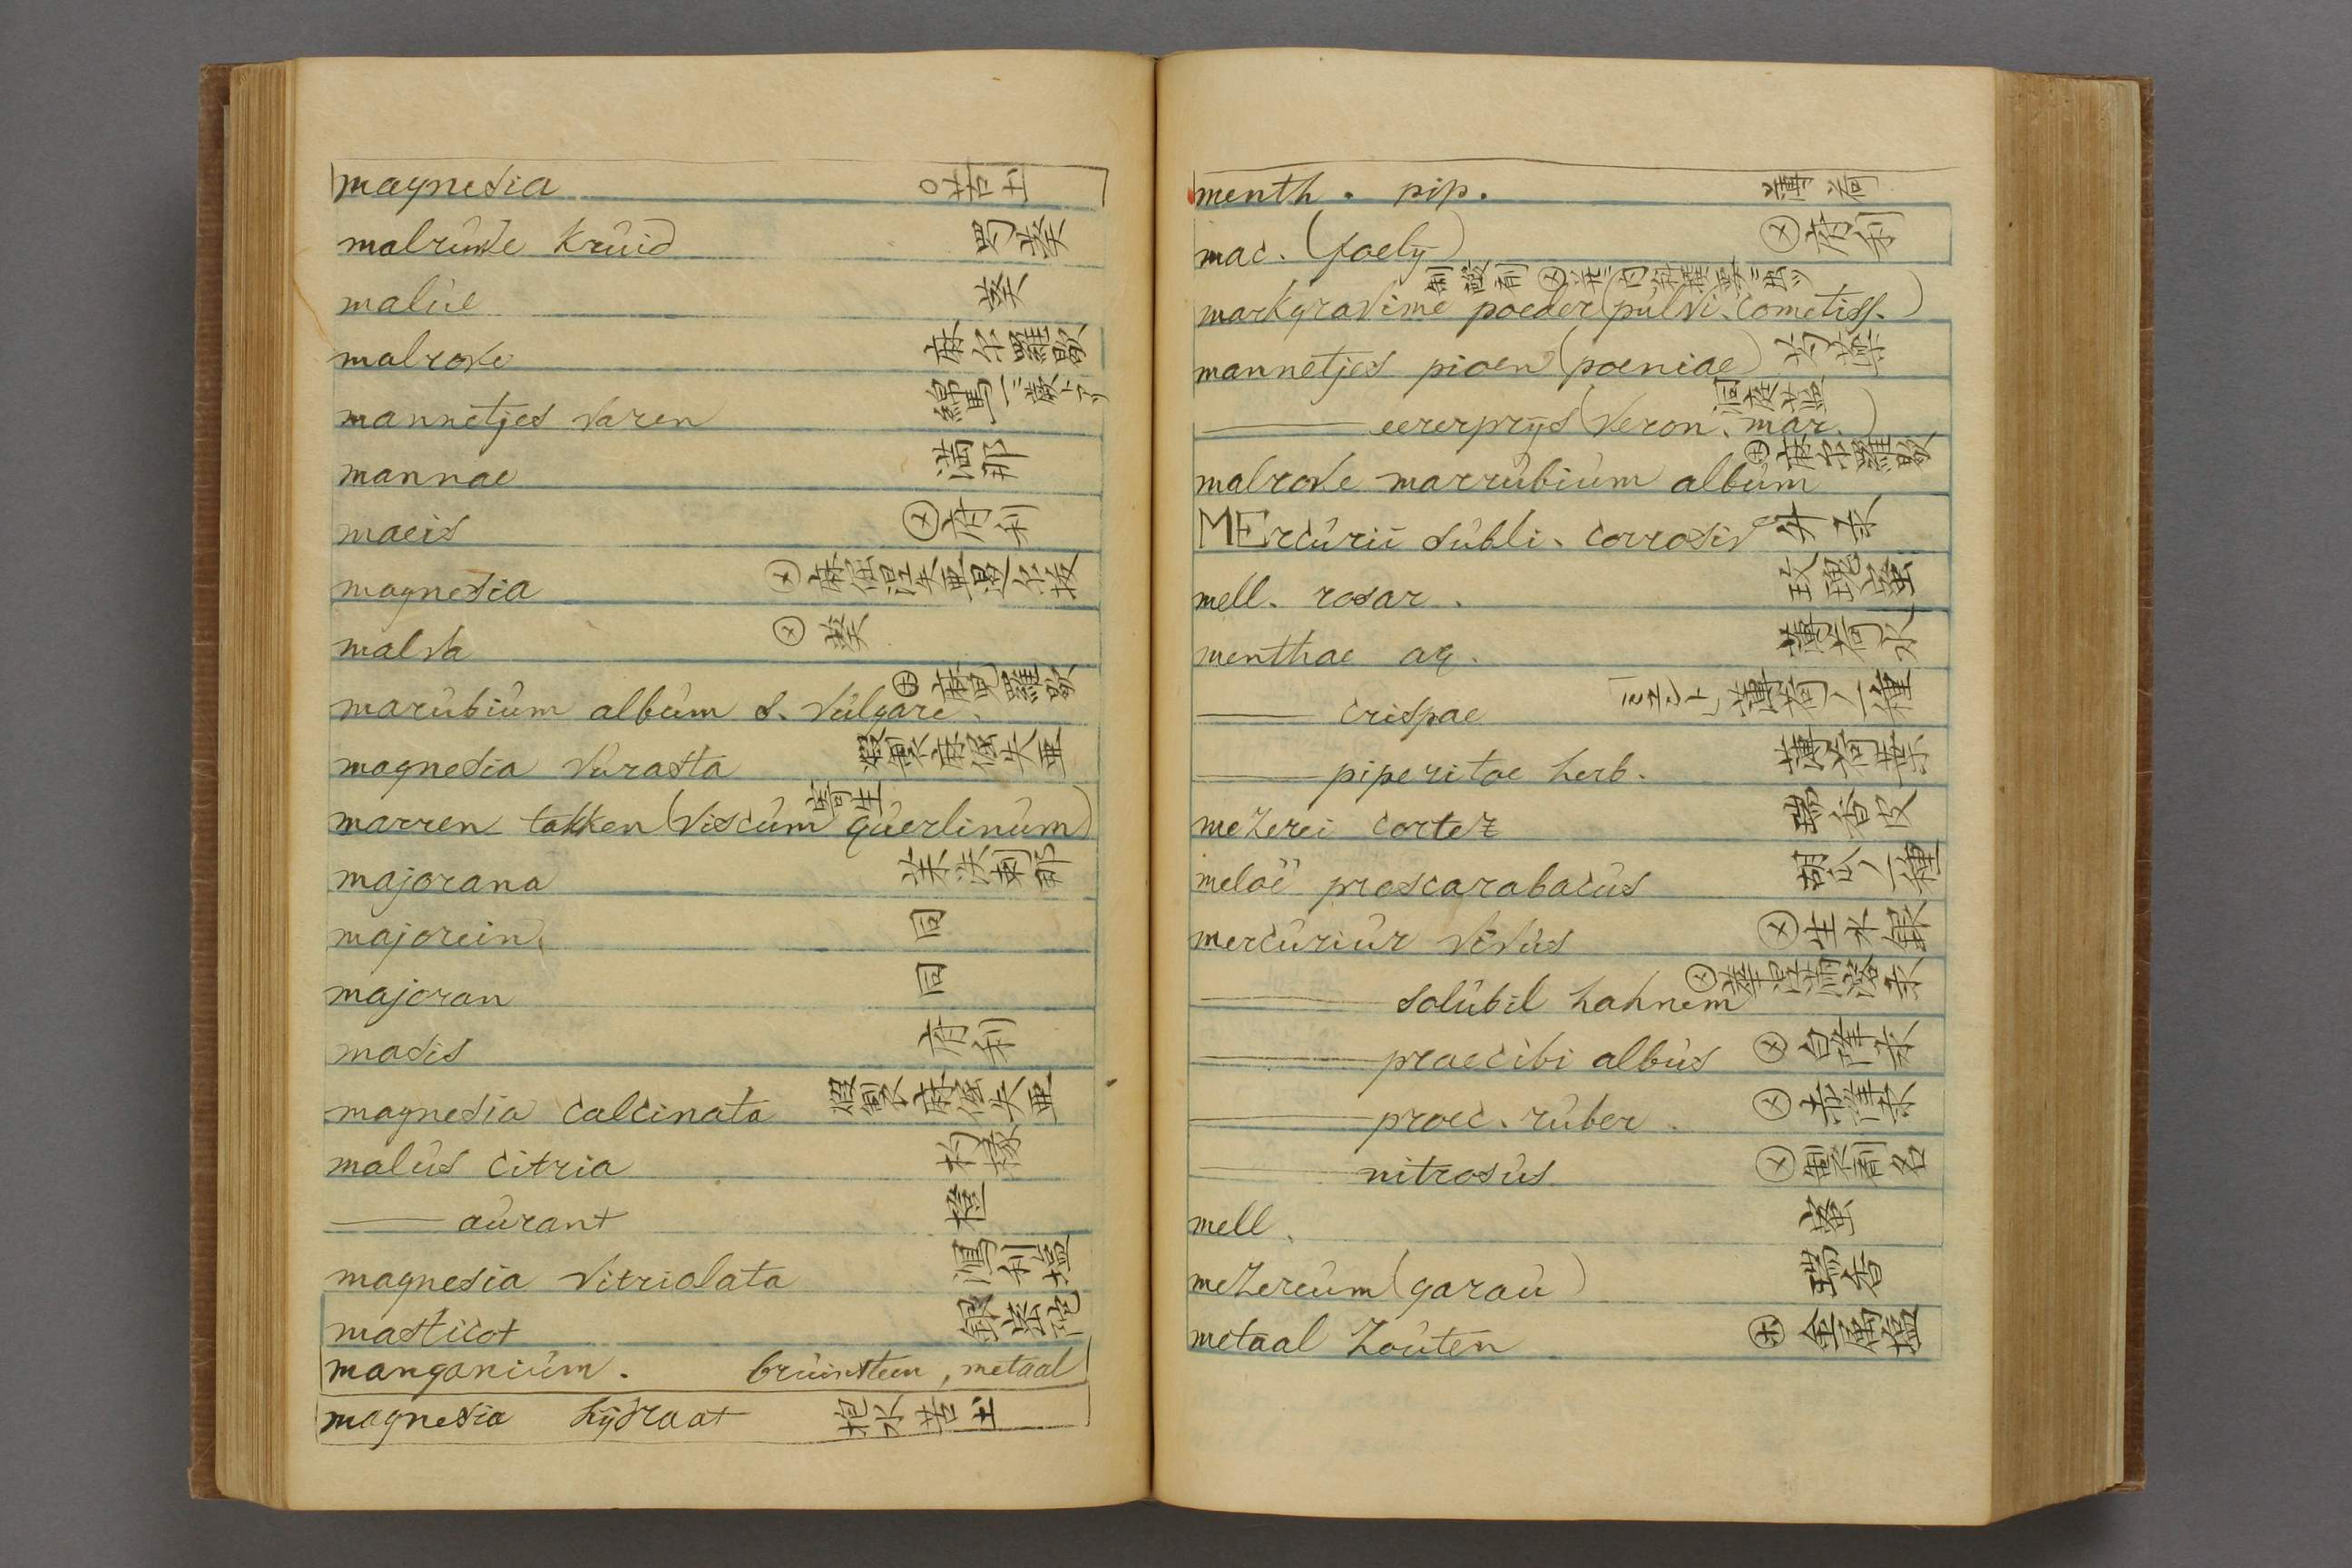 magnesia 苦土
malruwe kruid 蜀葵
malue 葵
malrove 麻尓羅歇
mannetjes varen 綿馬
mannae 満那
macis 肉利
magnesia
malva 葵
marubium album s. vulgare.
magnesia vurasta
marren takken (viscum querlinum) 寄生
majorana
majorein 同
majoran 同
masis
magnesia calcinata
malus citria 枸櫞
—— aurant 橙
magnesia vitriolata 瀉利塩
masticot 銀密陀
manganium. bruinsteen, metaal
magnesia hydraat 抱水苦土
menth. pip. 薄荷
mac. (foely)
markgravime poeder (pulvi. cometiss.)
mannetjes pioen (poeniae) 芍薬
—— eererprys (veron. mar.)
malrove marrubium album 麻尓羅歇
MErcurii subli. corrosiv 升汞
mell. rosar. 玫瑰蜜
menthae aq. 薄荷水
—— crispae 薄荷ノ一種
—— piperitae herb. 薄荷葉
mezerei cortez 瑞香皮
meloë proscarabacus
mercuriur vivus 生水銀
—— solubil hahnem
—— praecibi albus 白降汞
—— praec. ruber. 赤降汞
—— nitrosus 製剤名
mell. 蜜
mezereum (garau) 瑞香
metaal zouten 金属塩